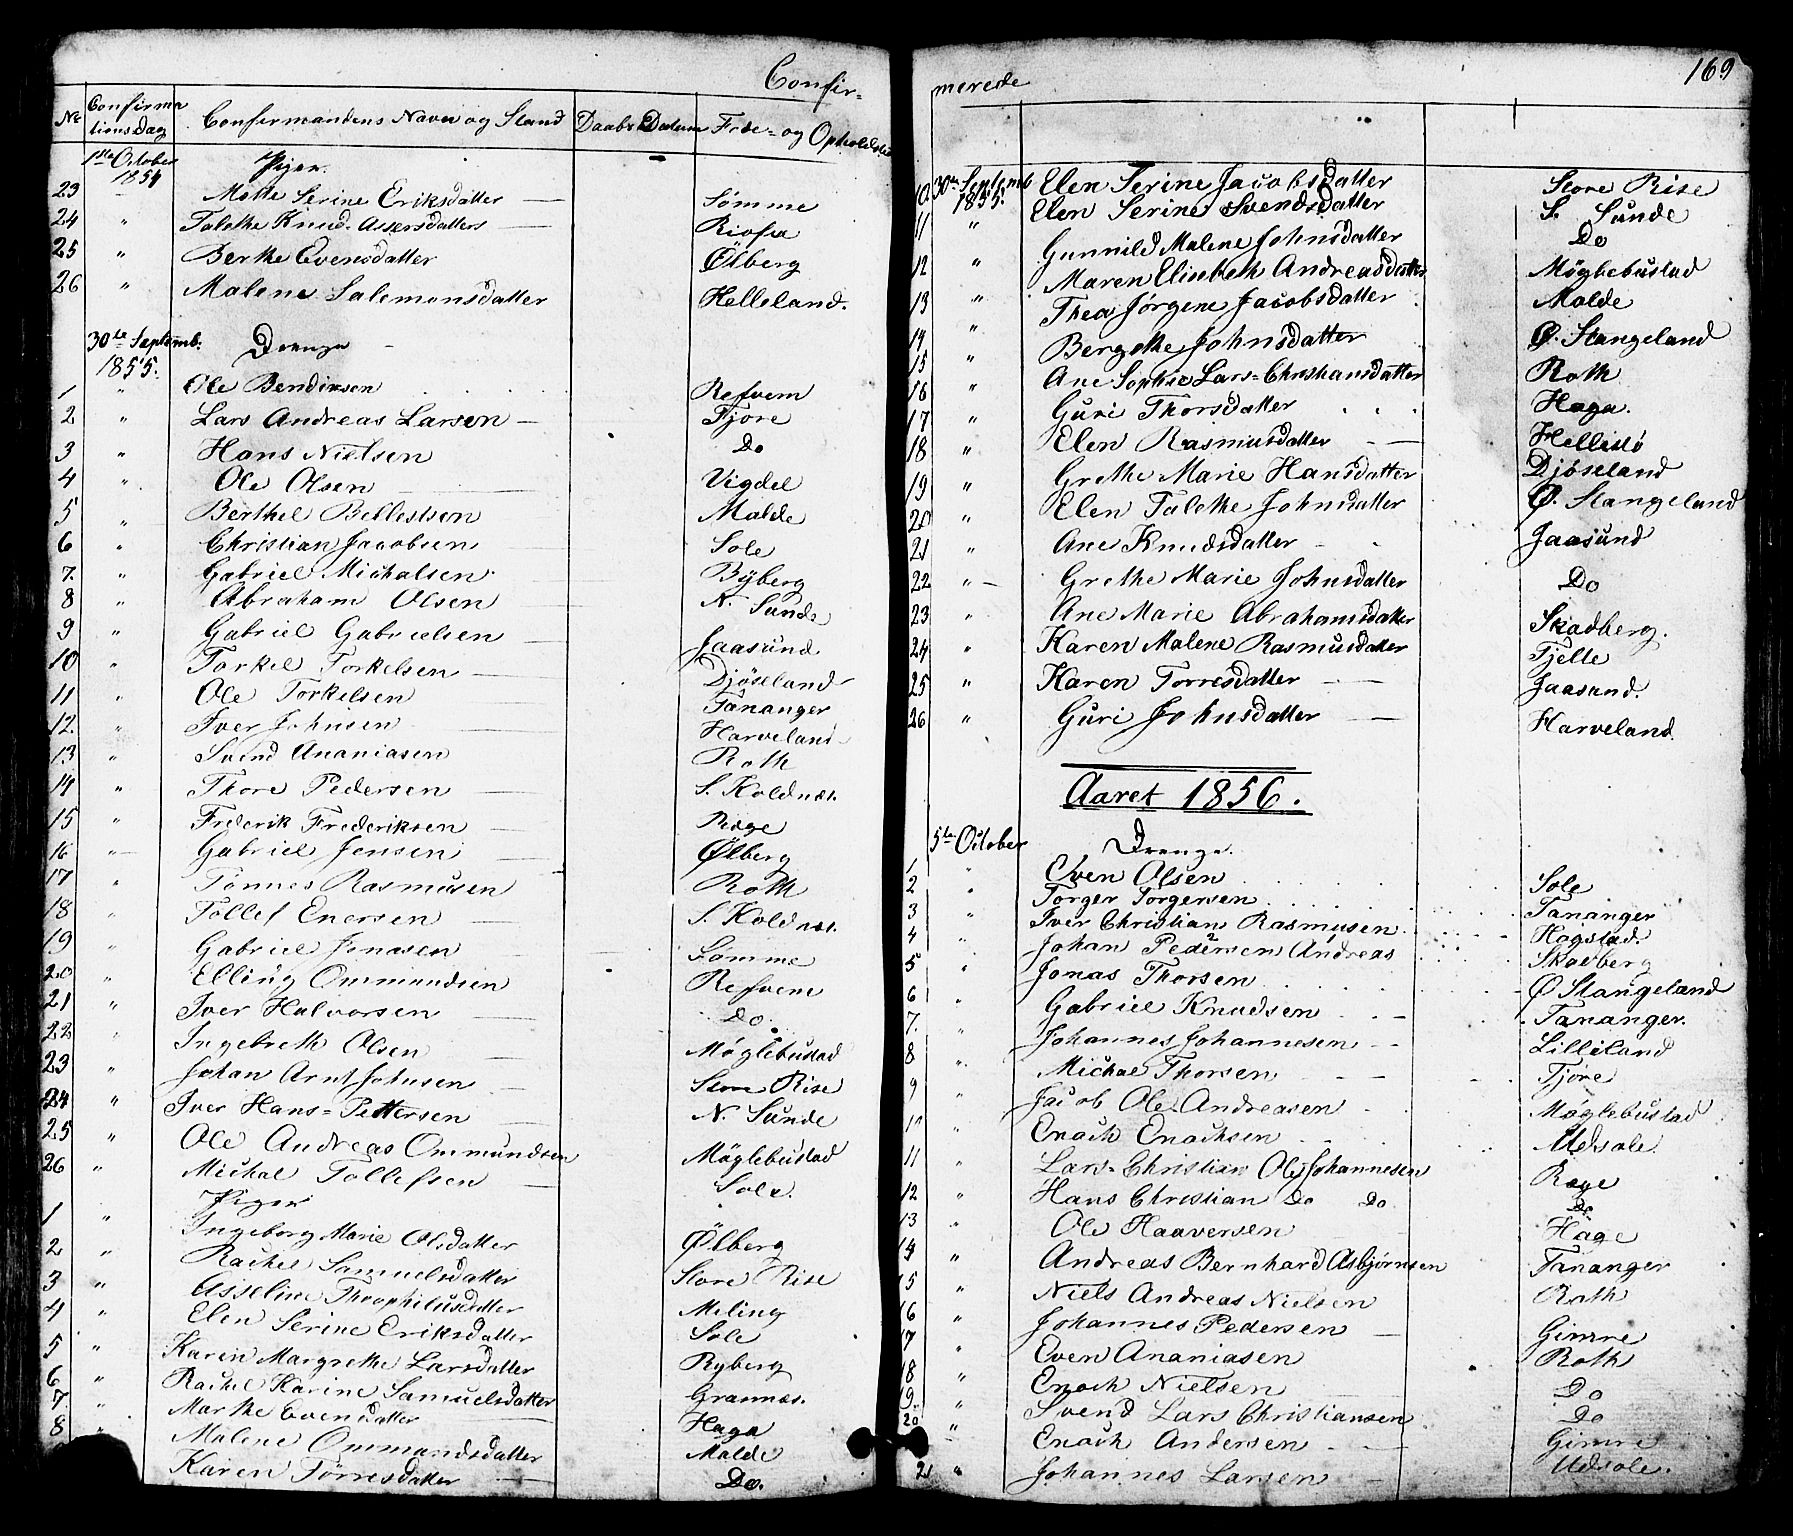 Confir-
No Confirma tions Dag Confirmandens Navn og Stand Daabs Datum Føde- og Opholdsted
1ste October 1854 Piger.
23 " Mette Serine Eriksdatter Sømme
24 " Talethe Knud-Assersdatter
25 " Berthe Evensdatter Ölberg
26 " Malene Salemonsdatter Helleland.
30te Septemb. 1855. Drenge
1 " Ole Bendiksen Refvem
2 " Lars Andreas Larsen Tjore
3 " Hans Nielsen Do
4 " Ole Olsen Vigdel
5 " Berthel Bellestsen Malde
6 " Christian Jacobsen Sole
7. " Gabriel Michalsen Byberg
8 " Abraham Olsen N. Sunde
9 " Gabriel Gabrielsen Jaasund
10 " Torkel Torkelsen Djöseland
11 " Ole Torkelsen Tananger
12. " Iver Johnsen Harveland
13 " Svend Ananiasen Roth
14 " Thore Pedersen S. Koldnæs.
15 " Frederik Frederiksen Rege
16 " Gabriel Jensen Ölberg
17 " Tønnes Rasmusen Roth
18 " Tollef Enersen S. Koldnæs.
19 " Gabriel Jonasen Sømme
20 " Elling Ommundsen Refvem
21 " Iver Halvorsen Do.
22 " Ingebreth Olsen Møglebustad
23 " Johan Arnt Johnsen Store Rise
24 " Iver Hans-Pettersen N. Sunde
25 " Ole Andreas Ommundsen Møglebustad
26 " Michal Tollefsen Sole.
Piger
1 " Ingeborg Marie Olsdatter Ölberg
2 " Rachel Samuelsdatter Store Rise
3 " Asseline Theophilusdatter Meling
4 " Elen Serine Eriksdatter Sole
5 " Karen Margrethe Larsdatter Byberg
6 " Rachel Karine Samuelsdatter Grannæs.
7 " Marthe Evensdatter Haga
8 " Malene Ommundsdatter Malde
Karen Tørresdatter Do.
merede 169
10 30te Septemb 1855. Elen Serine Jacobsdatter Store Rise
11 " Elen Serine Svendsdatter S. Sunde
Gunnild Malene Johnsdatter Do
12 " Maren Elisabeth Andreasdatter Møglebustad
13 " Thea Jørgene Jacobsdatter Malde
14 " Bergethe Johnsdatter Ø. Stangeland
15 " Ane Sophie Lars-Christiansdatter Roth
16 " Guri Thorsdatter Haga.
17 " Elen Rasmusdatter Hellestø
18 " Grethe Marie Hansdatter Djöseland
19 " Elen Talethe Johnsdatter Ø. Stangeland
20 " Ane Knudsdatter Jaasund
21 "
22 " Grethe Marie Johnsdatter Do
23 " Ane Marie Abrahamsdatter Skadberg.
24 " Karen Malene Rasmusdatter Tjelte
25 " Karen Torresdatter Jaasund.
26 " Guri Johnsdatter Harveland
Aaret 1856.
5te October Drenge.
1 " Even Olsen Sole
2 " Torger Torgersen Tananger
3 " Iver Christian Rasmusen Hogstad.
4 " Johan Pedersen Andreas Skadberg
5 " Jonas Thorsen Ø Stangeland
6 " Gabriel Knudsen Tananger.
7. " Johannes Johannesen Lilleland
8 " Michae Thorsen Tjøre
9 " Jacob Ole Andreasen Møglebustad
10 " Enoch Enochsen Udsole.
11 " Lars-Christian Ole Johannesen Rege
12 " Hans Christian Do Do Do
13 " Ole Haaversen Hage
14 " Andreas Bernhard Asbjørnsen Tananger
15 " Niels Andreas Nielsen Roth
16 " Johannes Pedersen Gimre
17 " Even Ananiasen Roth
18 " Enoch Nielsen Do
19. " Svend Lars Christiansen Do
20 " Enoch Andersen Gimre
21 " Johannes Larsen Udsole.